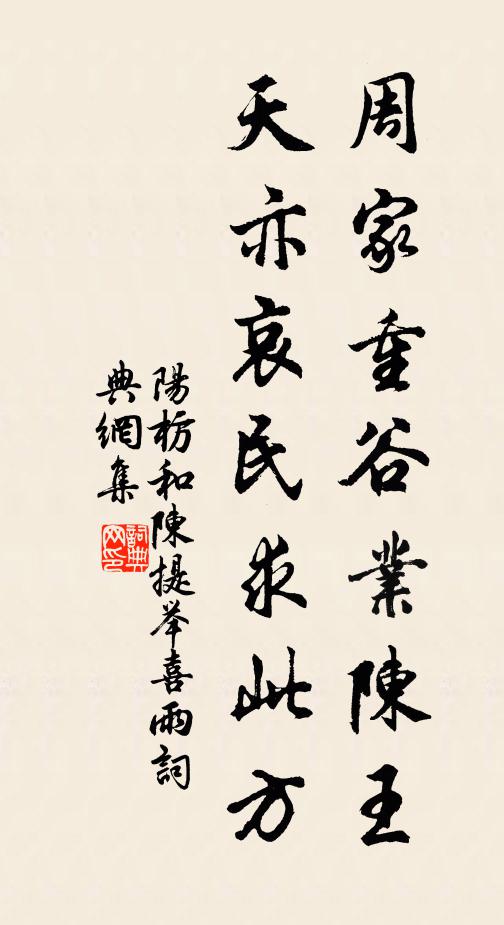 周家重谷業陳王
天亦哀民求此方
陽枋和陳提举喜雨詞
典網集
詞典
网印